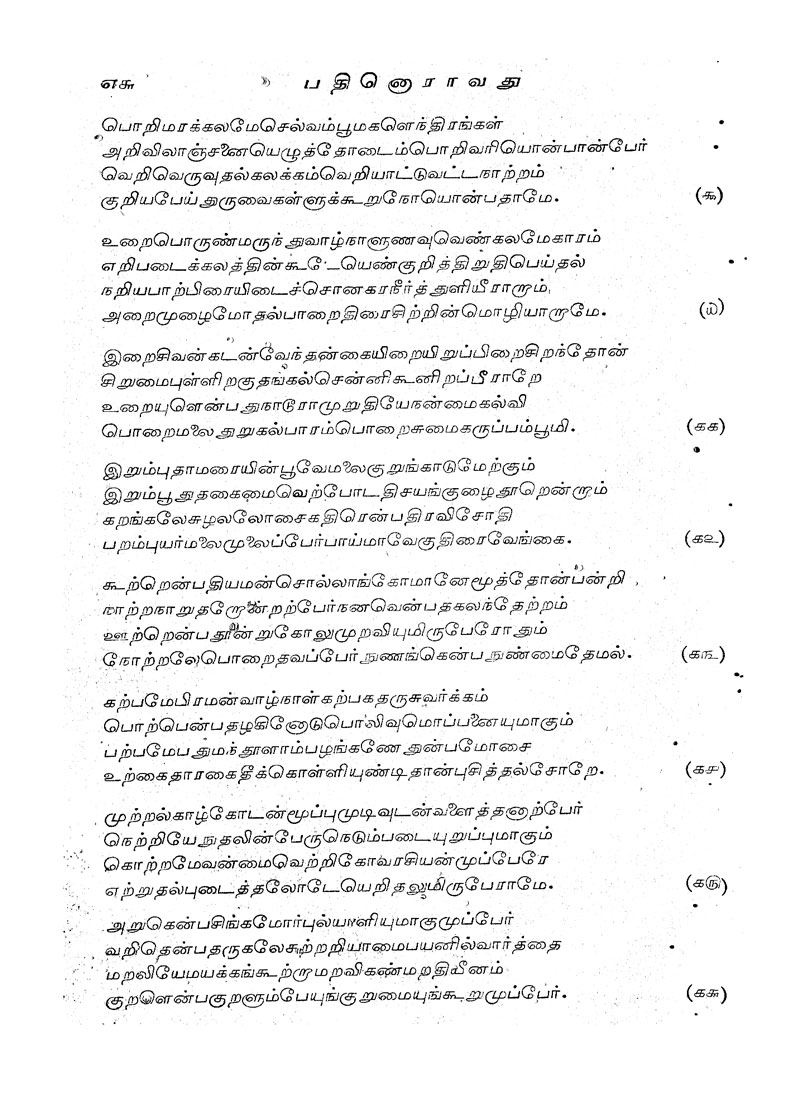 எஅ பதினொராவது
பொறிமரக்கலமேசெல்வம்பூமகளெந்திரங்கள்
அறிவிலாஞ்சனையெழுத்தோடைம்பொறிவரியொன்பான்பேர்
வெறிவெருவுதல்கலக்கம்வெறியாட்டுவட்டநாற்றம்
குறியபேய்துருவைகள்ளுக்கூறுநோயொன்பதாமே. (௯)
உறைபொருண்மருந்துவாழ்நாளுணவுவெண்கலமேகாரம்
எறிபடைக்கலத்தின்கூடேயெண்குறித்திறுதிபெய்தல்
நறியபாற்பிரையிடைச்சொனகரநீர்த்துளியீராறும்
அறைமுழைமோதல்பாறைதிரைசிற்றின்மொழியாறாமே. (௰)
இறைசிவன்கடன்வேந்தன்கையிறையிறுப்பிறைசிறந்தோன்
சிறுமைபுள்ளிறகுதங்கல்சென்னிகூனிறப்பீராறே
உறையுளென்பதுநாடூராமுறுதியேநன்மைகல்வி
பொறைமலைதுறுகல்பாரம்பொறைசுமைகருப்பம்பூமி. (கக)
இறும்புதாமரையின்பூவேமலைகுறுங்காடுமேற்கும்
இறும்பூதுதகைமைவெற்போடதிசயங்குழைதூறென்றாம்
கறங்கலேசுழலலோசைகதிரென்பதிரவிசோதி
பறம்புயர்மலைமுலைப்பேர்பாய்மாவேகுதிரைவேங்கை. (க௨)
கூற்றென்பதியமன்சொல்லாங்கோமானேமூத்தோன்பன்றி
நாற்றநாறுதறோன்றற்பேர்நனவென்பதகலந்தேற்றம்
ஊற்றென்பதூன்றுகோலுமுறவியுமிருபேரோதும்
நோற்றலேபொறைதவப்பேர்நுணங்கென்பநுண்மைதேமல். (க௩)
கற்பமேபிரமன்வாழ்நாள்கற்பகதருசுவர்க்கம்
பொற்பென்பதழகினோடுபொலிவுமொப்பனையுமாகும்
பற்பமேபதுமந்தூளாம்பழங்கணேதுன்பமோசை
உற்கைதாரகைதீக்கொள்ளியுண்டிதான்புசித்தல்சோறே. (க௪)
முற்றல்காழ்கோடன்மூப்புமுடிவுடன்வளைத்தனாற்பேர்
நெற்றியேநுதலின்பேருநெடும்படையுறுப்புமாகும்
கொற்றமேவன்மைவெற்றிகோவரசியன்முப்பேரே
எற்றுதல்புடைத்தலோடேயெறிதலுமிருபேராமே. (க௫)
அறுகென்பசிங்கமோர்புல்யாளியுமாகுமுப்பேர்
வறிதென்பதருகலேசுற்றறியாமைபயனில்வார்த்தை
மறலியேமயக்கங்கூற்றாமறவிகண்மறதியீனம்
குறளென்பகுறளும்பேயுங்குறுமையுங்கூறுமுப்பேர். (க௬)